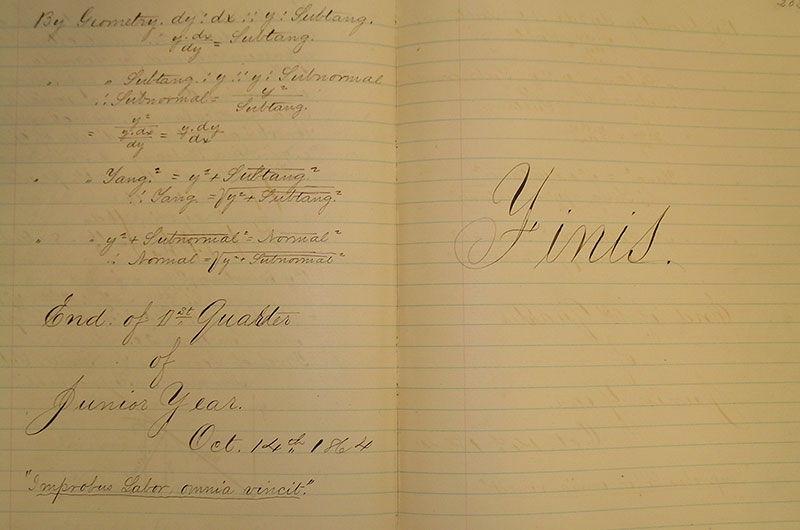 By Geometry. dy : dx :: y : Subtang.
∴ y.dx/dy = Subtang.
" " Subtang. : y :: y : Subnormal
∴ Subnormal = y²/Subtang.
= y²/(y.dx/dy) = y.dy/dx
" " Tang.² = y² + Subtang.²
∴ Tang. = √y² + Subtang.²
" " y² + Subnormal² = Normal²
∴ Normal = √y² + Subnormal²
End. of 1st Quarter
of
Junior Year.
Oct. 14th 1864
"Improbus Labor omnia vincit."
Finis.